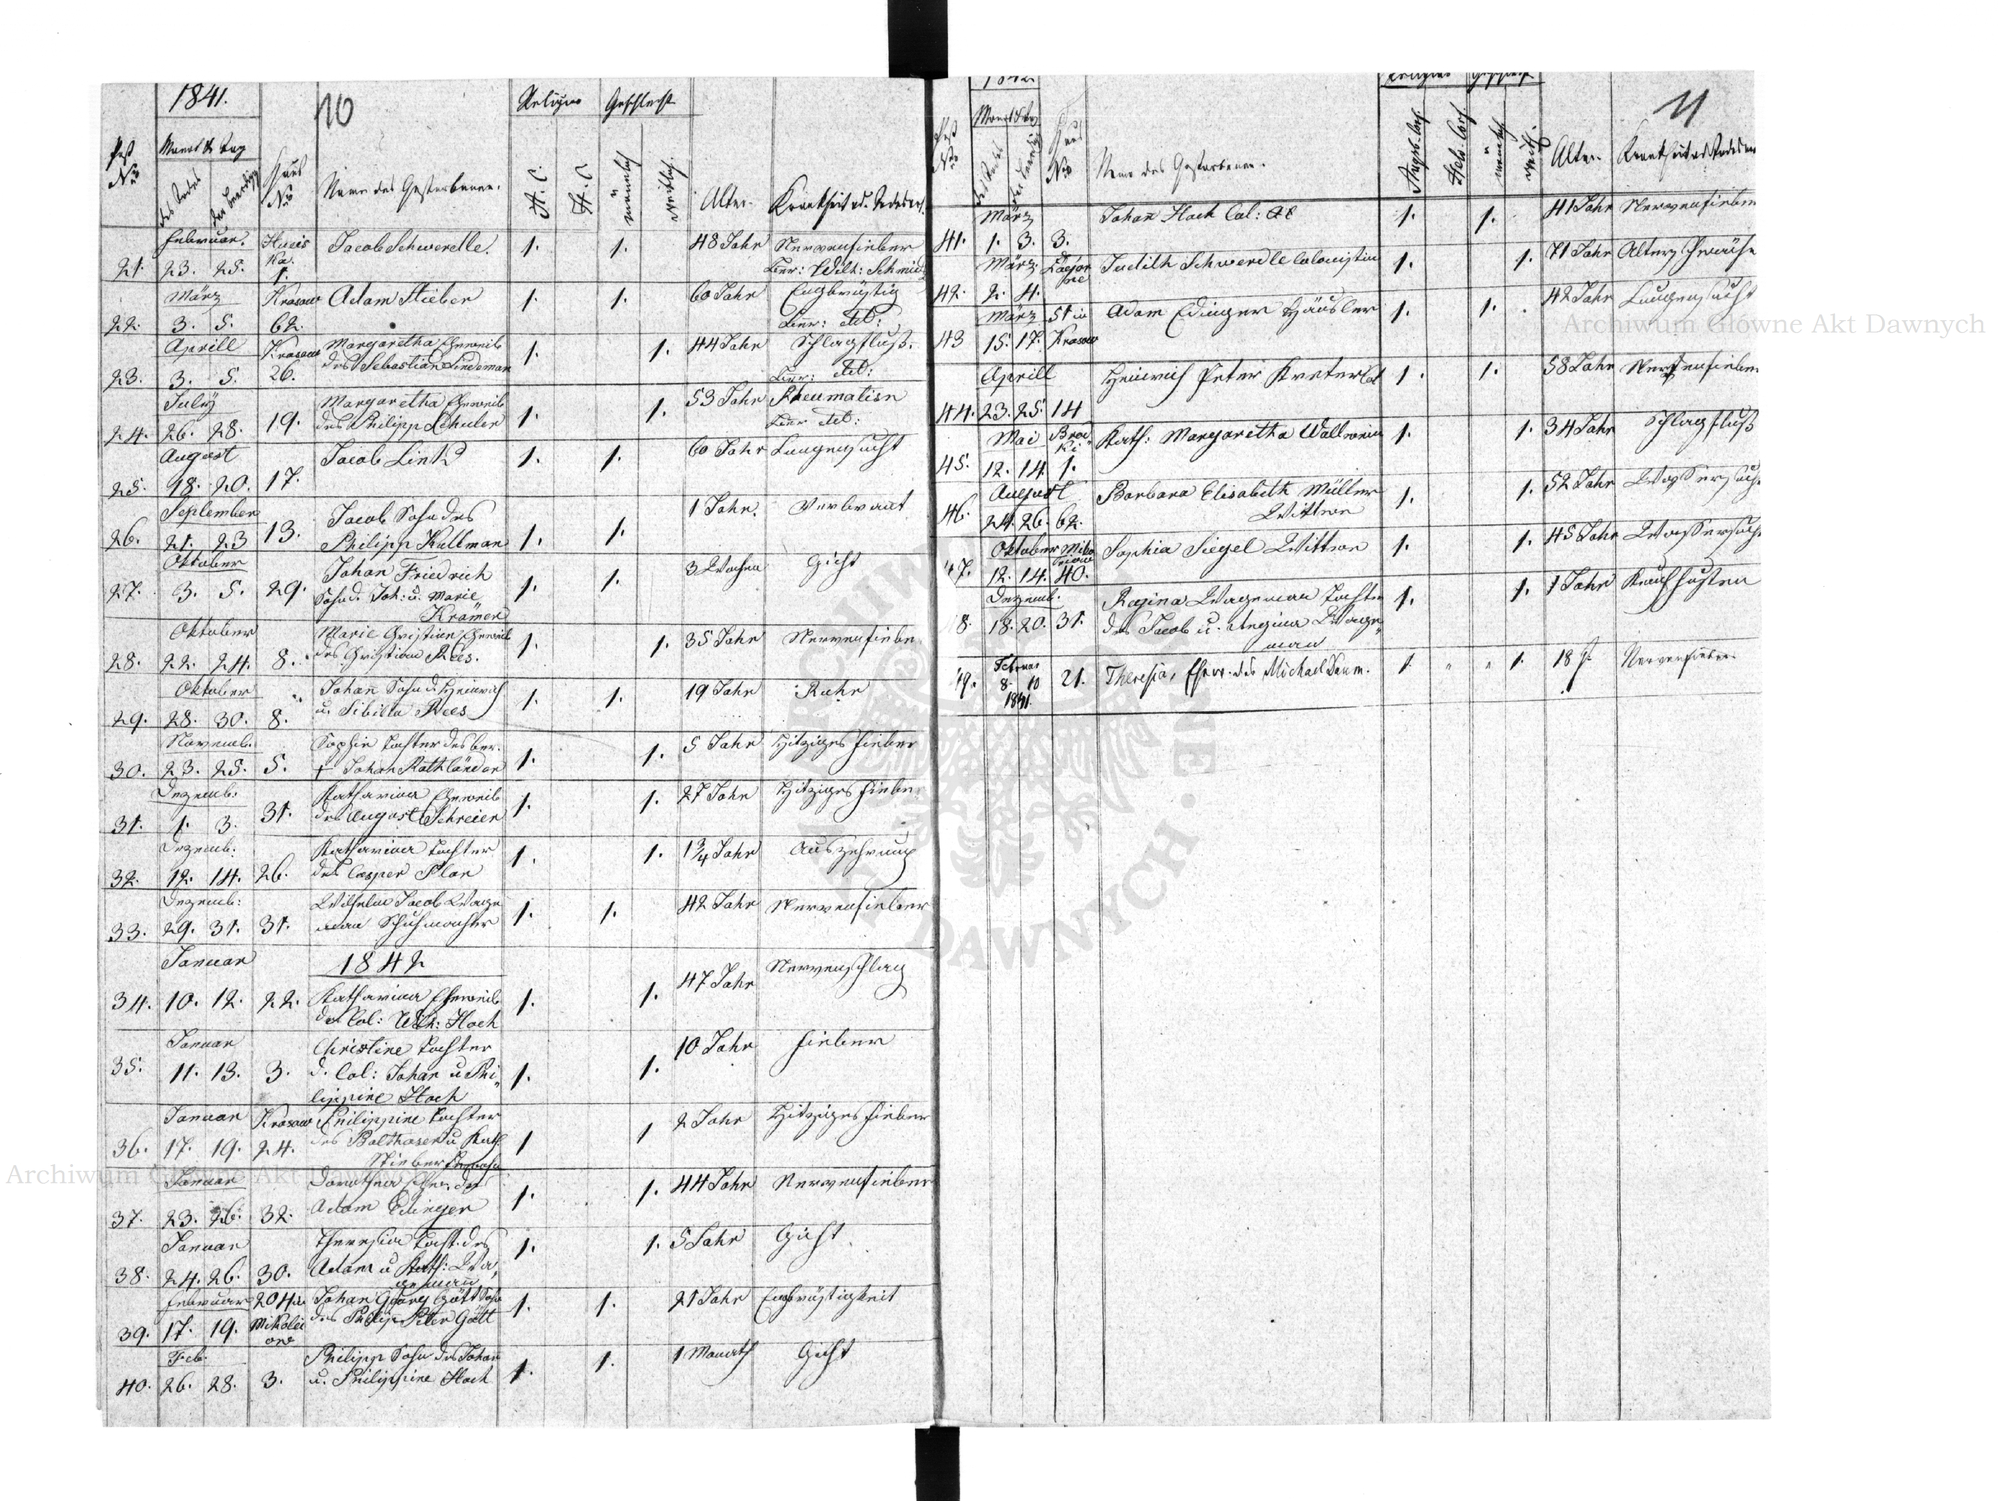 1841.
10
Religion Geschlecht
Post Nro
Monat u Tag
des Todes
der Beerdig
Haus Nro
Name des Gestorbenen.
A. C.
H. C.
männlich
weiblich
Alter.
Krankheit u. Todesart.
21. Februar. 23. 25.
1.
Jacob Schwerdle.
1. 1. 48 Jahr Nervenfieber
Wilh: Schmid
22. März 3. 5. Krasow 62. Adam Stieber 1. 1. 60 Jahr Engbrüstig
23. Aprill 3. 5. Krasow 26. Margaretha Eheweib
des Sebastian Lindeman
1. 1. 44 Jahr Schlagfluß.
24. July 26. 28. 19. Margaretha Eheweib
des Philipp Schuler
1. 1. 53 Jahr Rheumatism
25. August 18. 20. 17. Jacob Link
1. 1. 60 Jahr Lungensucht
26. September 21. 23 13. Jacob Sohn des
Philipp Kullman
1. 1. 1 Jahr. Verbrant
27. Oktober 3. 5. 29. Johan Friedrich
Sohn d. Joh: u. Marie
Krämer
1. 1. 3 Wochen Gicht
28. Oktober 22. 24. 8. Marie Christine Eheweib
des Christian Rees.
1. 1. 35 Jahr Nervenfieber
29. Oktober 28. 30. 8. Johan Sohn d. Heinrich
u. Sibilla Rees
1. 1. 19 Jahr Ruhr
30. Novemb. 23. 25. 5. Sophie Tochter des ver.
† Johan Rothländer
1. 1. 5 Jahr Hitziges Fieber
31. Dezemb. 1. 3. 31. Katharina Eheweib
des August Schreier
1. 1. 27 Jahr Hitziges Fieber
32. Dezemb: 12. 14. 26. Katharina Tochter
des Casper
1. 1. 1¾ Jahr Auszehrung
33. Dezemb: 29. 31. 31. Wilhelm Jacob Wage
man Schuhmacher
1. 1. 42 Jahr Nervenfieber
1842
34. Januar 10. 12. 22. Katharina Eheweib
des Col: Wilh: Hoch
1. 1. 47 Jahr Nervenschlag
35. Januar 11. 13. 3. Christine Tochter
d. Col: Johan u Phi
lippine Hoch
1. 1. 10 Jahr Fieber
36. Januar 17. 19. Krasow 24. Philippine Tochter
des Balthaser u Kath.
Stieber
1 1 2 Jahr Hitziges Fieber
37. Januar 23. 26. 32. Dorothea Ehew. des
Adam Edinger
1. 1. 44 Jahr Nervenfieber
38. Januar 24. 26. 30. Theresia Tocht. des
Adam u Kath: Wa
geman
1. 1. 5 Jahr Gicht.
39. Februar 17. 19. 204 Mikolai
ow
Johan Georg Gött Sohn
des Philip Peter Gött
1. 1. 21 Jahr Engbrüstigkeit
40. Feb. 26. 28. 3. Philipp Sohn des Johan
u. Philippine Hoch
1. 1. 1 Monath Gicht
1842
11
Religion Geschlecht
Post Nro
Monat u Tag
des Todes
der Beerdig
Haus Nro
Name des Gestorbenen.
Augsb. Conf.
Helv. Conf.
männlich
weibl.
Alter.
Krankheit u Todesart
41. März 1. 3. 3. Johan Hoch Col: AC 1. 1. 41 Jahr Nervenfieber
42. März 2. 4. Judith Schwerdle Colonistin 1. 1. 71 Jahr Alters Schwäche
43 März 15. 17. 51 in Krasow Adam Edinger Häusler 1. 1. 42 Jahr Lungensucht
44. Aprill 23. 25. 14 Heinrich Peter Kreter 1. 1. 58 Jahr Nervenfieber
45. Mai 12. 14. Brod
ki 1. Kath: Margaretha Wallrawin 1. 1. 34 Jahr Schlagfluß
46. August 24. 26. 62. Barbara Elisabeth Müller
Wittwe
1. 1. 52 Jahr Wassersucht
47. Oktober 12. 14. Miko
laiow 40. Sophia Siegel Wittwe 1. 1. 45 Jahr Wassersucht
48. Dezemb. 18. 20. 31. Regina Wageman Tochter
des Jacob u. Regina Wage
man
1. 1. 1 Jahr Keuchhusten
49. Februar 8. 10 1841. 21. Theresia, Ehew. des Michael Daum. 1. " " 1. 18 J. Nervenfieber.
Archiwum Główne Akt Dawnych
Archiwum Główne Akt Dawnych
ARCHIWUM GŁÓWNE AKT DAWNYCH